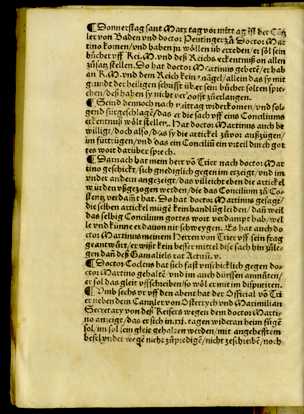 ¶ Donnerstag sant Marx tag vor mittag ist der Cantz
ler von Baden vnd doctor Peutinger zů Doctor Mar
tino komen/ vnd haben jn wöllen vberreden/ er sol sein
bücher vff Kei. M. vnd deß Reichs erkentnuß on allen
zůsatz stellen. Do hat doctor Martinus gebetē/ er hab
an K. M. vnd dem Reich kein mangel/ allein das sy mit
g walt der heiligen schrifft über sein bücher solten spre
chen/ deß haben sy nit verhofft zůerlangen.
¶ Seind dennoch nach mittag widerkomen/ vnd sol
gend fürgeschlagē/ das er die sach vff eins Conciliums
erkentnuß wölt stellen. Hat doctor Martinus auch be
williget/ doch also/ das sy die artickel zůvor außzügen/
im fürtrügen/ vnd das ein Conciliū ein vrteil durch got
tes wort darüber sprech.
¶ Darnach hat mein herr vō Trier nach doctor Mar
tino geschickt/ sich gnediglich gegen im erzeigt/ vnd im
vnder andern angezeigt/ das villeicht eben die artickel
würden vßgezogen werden/ die das Concilium zů Co-
stentz verdampt hab. Do hat doctor Martinus gesagt/
die selben artickel mügē kein handlūg leiden/ dañ weil
das selbig Concilium gottes wort verdampt hab/ wel
le vnd künne er dauon nit schweygen. Es hat auch do
ctor Martinus meinem Herren von Trier vff sein frag
geantwürt/ er wißt kein besser mittel diser sach hin zůle-
gen dañ deß Gamalielis rat Actuū. v.
¶ Doctor Cocleus hat sich fast vnschicklich gegen do-
ctor Martino gehaltē vnd im auch dürffen anmůten/
er sol das gleit vffschreiben/ so wöl er mit im disputirn.
¶ Vmb sechs vr vff den abent hat der Official vō Tri
er neben dem Cantzler von Österrych vnd Maximilian
Secretary von deß Keisers wegen dem doctor Marti-
no anzeigt/ das er sich in .xxi. tagen wideran heim fůgē
sol/ im sol sein gleit gehalten werden/ mit angehefftem
befelh/ vnder wegē nicht zů predigē/ nicht zeschreibē/ noch